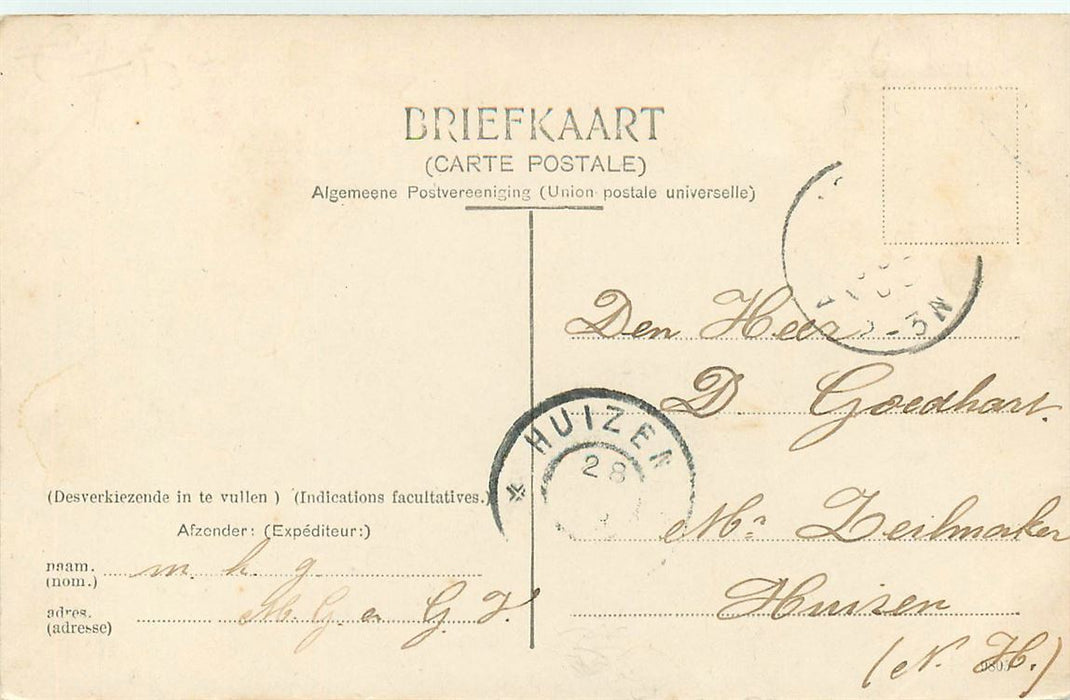 BRIEFKAART
(CARTE POSTALE)
Algemeene Postvereeniging (Union postale universelle)
-3N
Den Heer
D. Goedhart.
HUIZEN
28
Mr Zeilmaker
Huizen
(N. H.)
(Desverkiezende in te vullen ) (Indications facultatives.)
Afzender: (Expéditeur:)
naam. m. h. g.
(nom.)
adres. M. G. en G. V.
(adresse)